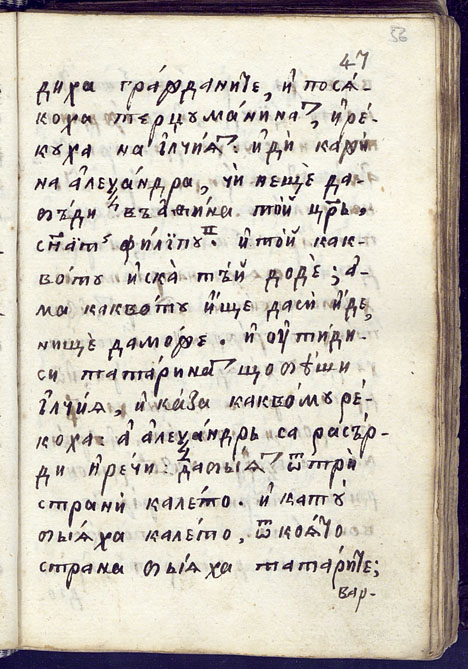 56
47
диха гра́жданите, и҆ посѧ́-
коха терцума́нина, и҆ ре́-
куха на і҆лчи́ѧ: и҆дѝ кажѝ
на а҆леѯа́ндра, чѝ нещѐ да-
въ́ди въ а҆ѳи́на то́й цр҃ь,
сн҃атъ фили́пу. и҆ то́й как-
во́ту и҆ска̀ тъ́й додѐ; а҆-
ма какво́ту и҆́ще даси́ и҆́де,
нищѐ дамо́же. и҆ ѹ҆ти́ди-
си тата́рина що бѣ́ши
і҆лчи́ѧ, и҆ ка́за какво́му ре́-
коха: а҆ а҆леѯа́ндрь са расъ́р-
ди и҆ речѝ: да бы́ѧ ѿ трѝ
страни́ кале́то. и҆ като́
бы́ѧха кале́то, ѿ коѧ́то
страна бы́ѧха тата́рите;
вар-